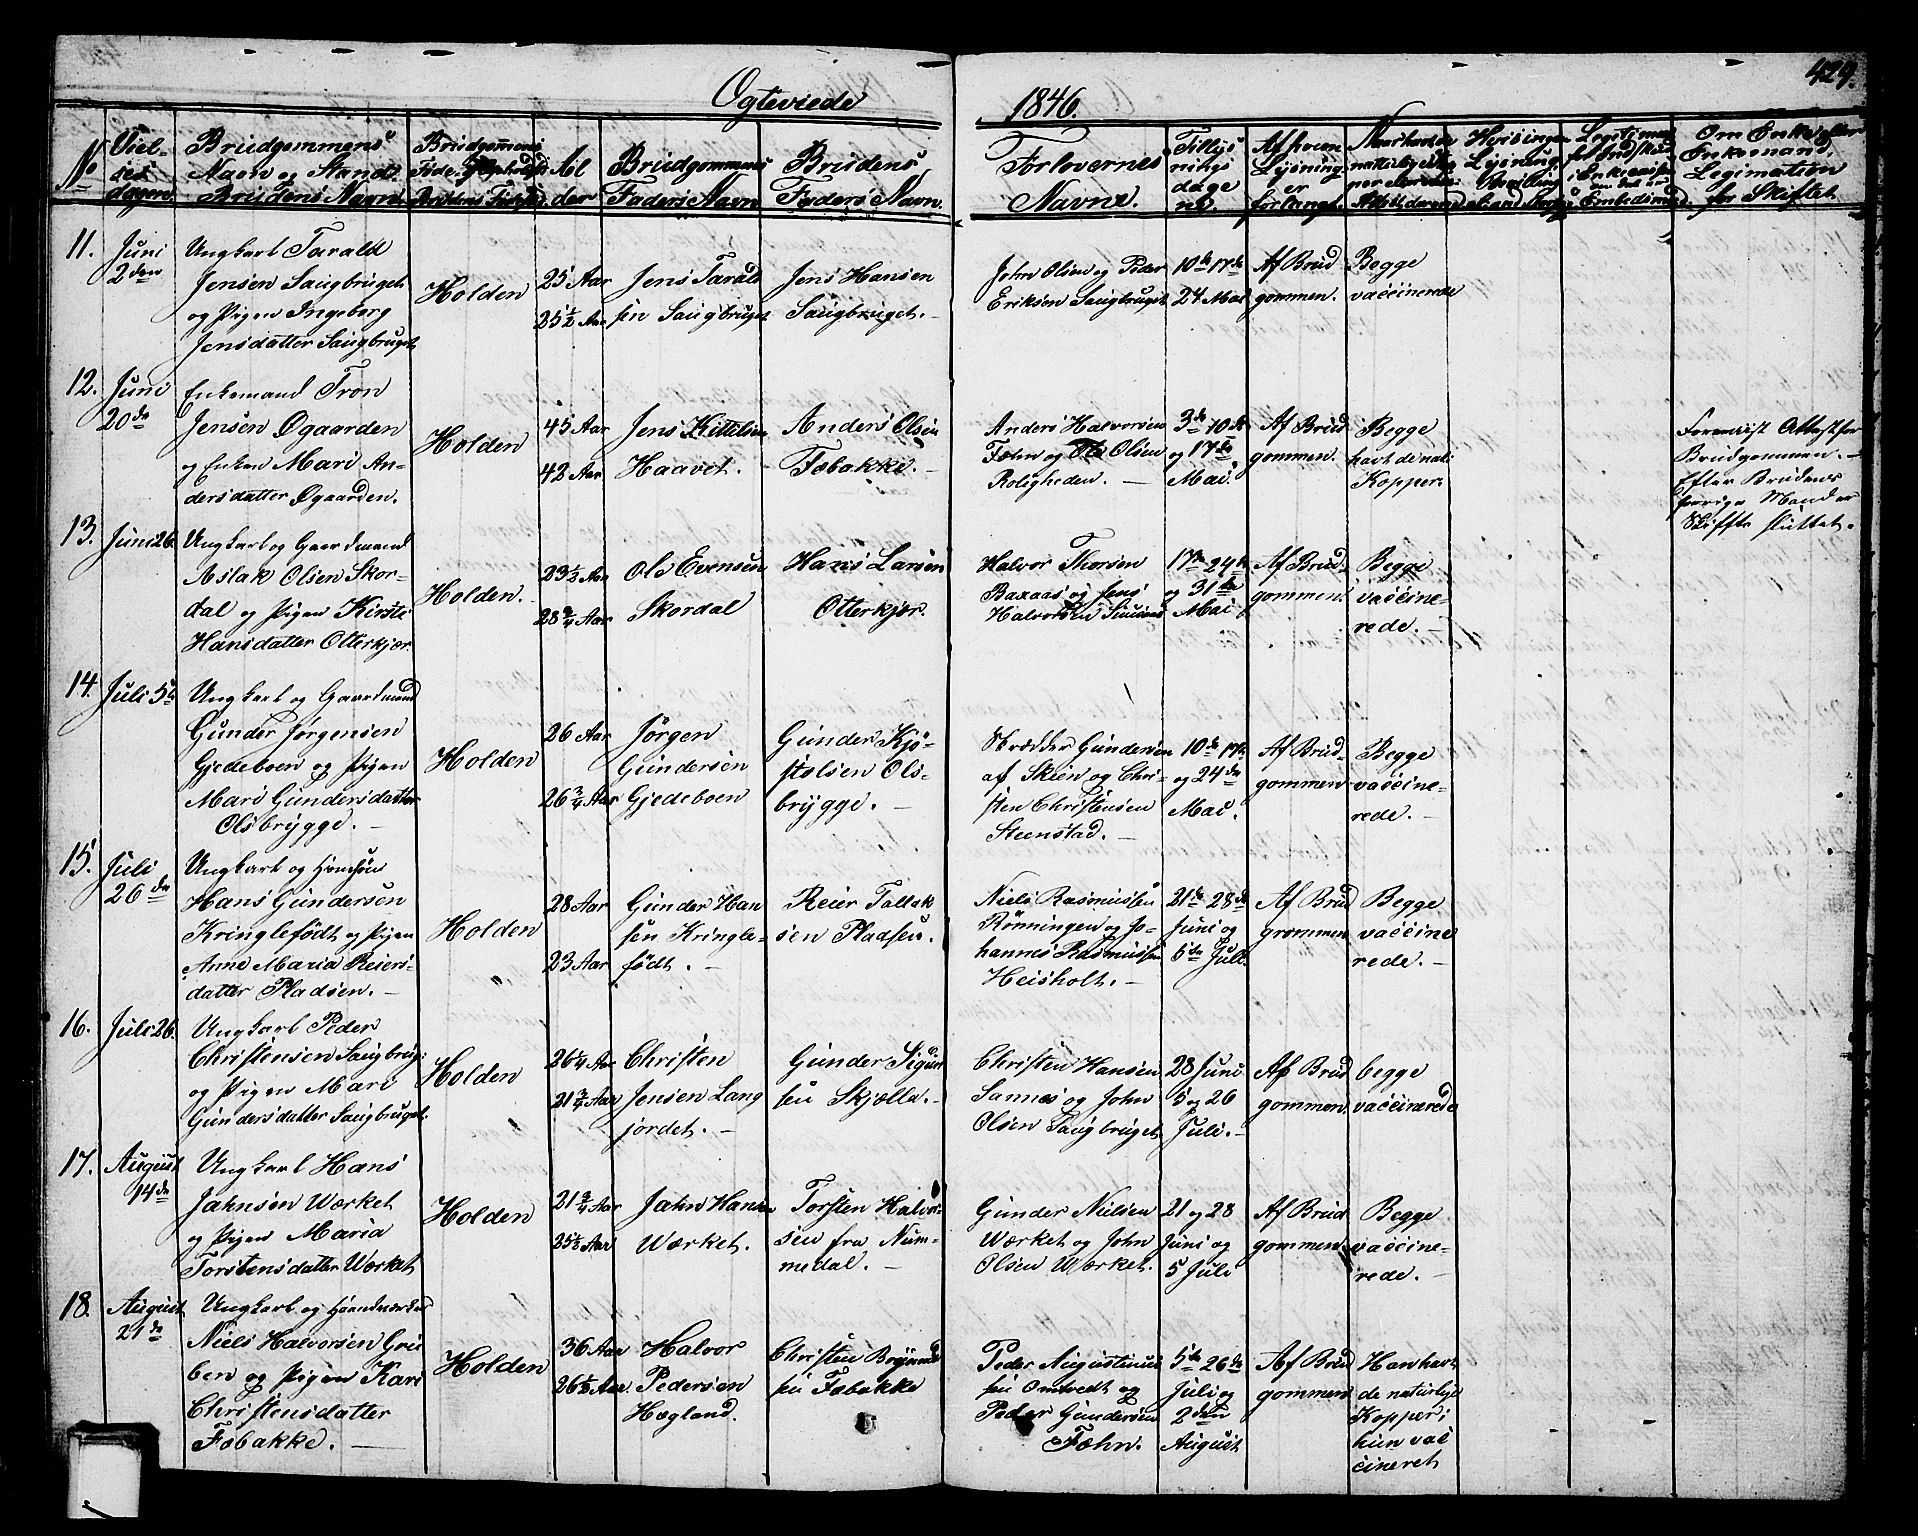 429.
Ogteviede 1846.
No
Viel-
ses
dagen.
Brudgommens
Navn og Stand
Brudens Navn.
Brudgommens
Brudens
Al
der
Brudgommens
Faders Navn
Brudens
Faders Navn.
Forlovernes
Navne.
Tillys
nings
dage
ne.
Af hvem
Lysning
er
forlangt.
Om Enke eller
Enkemand,
Legimation
for Skiftet.
11.
Juni
2den
Ungkarl Tarald
Jensen Saugbruget
og Pigen Ingeborg
Jensdatter Saugbruget
Holden
25 Aar
25½ Aar
Jens Tarald
sen Saugbruget
Jens Hansen
Saugbruget.
John Olsen og Peder
Eriksen Saugbruget
10de 17de
24 Mai
Af Brud
gommen.
Begge
vaccinerede
12.
Juni
20de
Enkemand Tron
Jensen Øgaarden
og Enken Mari An-
dersdatter Øgaarden.
Holden
45 Aar
42 Aar
Jens Kittilsen
Haavet.
Anders Olsen
Fæbakke.
Anders Halvorsen
Fæhn og Ole Olsen
Roligheden.
3de 10de
og 17de
Mai.
Af Brud
gommen.
Begge
havt de nat:
Kopper.
Foreviist Attest for
Brudgommen.
Efter Brudens
forrige Mand er
Skifte sluttet.
13.
Juni 26.
Ungkarl og Gaardmand
Aslak Olsen Skor-
dal og Pigen Kirsti
Hansdatter Otterkjær.
Holden.
23½ Aar
28¾ Aar
Ole Evensen
Skordal
Hans Larsen
Otterkjær.
Halvor Thorsen
Baxaas og Jens
Halvorsen
17de 24de
og 31te
Mai
Af Brud
gommen.
Begge
vaccine-
rede.
14.
Juli 5te
Ungkarl og Gaardmand
Gunder Jørgensen
Gjedeboen og Pigen
Mari Gundersdatter
Olsbrygge.
Holden
26 Aar
26¾ Aar
Jørgen
Gundersen
Gjedeboen
Gunder Kjø-
stolsen Ols-
brygge.
Skrædder Gundersen
af Skien og Chri-
sten Christensen
Steenstad.
10de 17de
og 24de
Mai.
Af Brud-
gommen
Begge
vaccine-
rede.
15.
Juli
26de
Ungkarl og
Hans Gundersen
Kringlefødt og Pigen
Anne Maria Reiers-
datter Pladsen.
Holden
28 Aar
23 Aar
Gunder Han
sen Kringle-
født.
Reier Tollek
sen Pladsen.
Niels Rasmussen
Rønningen og Jo-
hannes Rasmussen
Heisholt.
21de 28de
Juni og
5te Juli.
Af Brud
gommen
Begge
vaccine
rede.
16.
Juli 26.
Ungkarl Peder
Christensen Saugbrug:
og Pigen Mari
Gundersdatter Saugbruget.
Holden
26¼ Aar
21¾ Aar
Christen
Jensen Lang
jordet.
Gunder Sigur
sen Skjelle.
Christen Hansen
Sannes og John
Olsen Saugbruget
28 Juni
5 og 26
Juli.
Af Brud
gommen
begge
vaccinerede
17.
August
14de
Ungkarl Hans
Jahnsen Wærket
og Pigen Maria
Torstensdatter Wærket
Holden
21¾ Aar
25½ Aar
Jahn Hansen
Wærket.
Torsten Halvor
sen fra Num-
medal.
Gunder Nielsen
Wærket og John
Olsen Wærket.
21 og 28
Juni og
5 Juli
Af Brud
gommen
Begge
vaccine-
rede.
18.
August
21de
Ungkarl og Haandværker
Niels Halvorsen Gru
ben og Pigen Kari
Christensdatter
Fæbakke.
Holden
36 Aar
26½ Aar.
Halvor
Pedersen
Hægland.
Christen Brynild
sen Fæbakke
Peder Augustinus
sen Omtvedt og
Peder Gundersen
Fæhn.
5te 26de
Juli og
2den
August
Af Brud
gommen
Han havt
de naturlige
Kopper;
hun vac
cineret